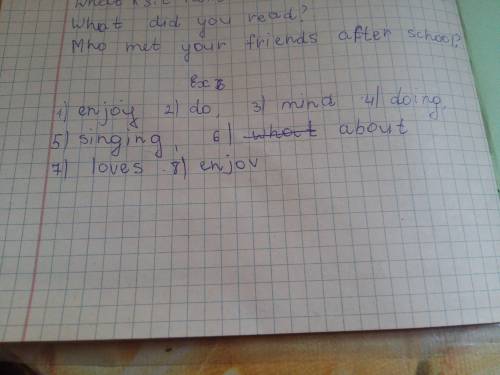 What did you read?
Mho met your friends after school?
Ex
1) enjoy 2) do, 3) mind 4) doing,
5) singing, 6) what about
7) loves 8) enjoy